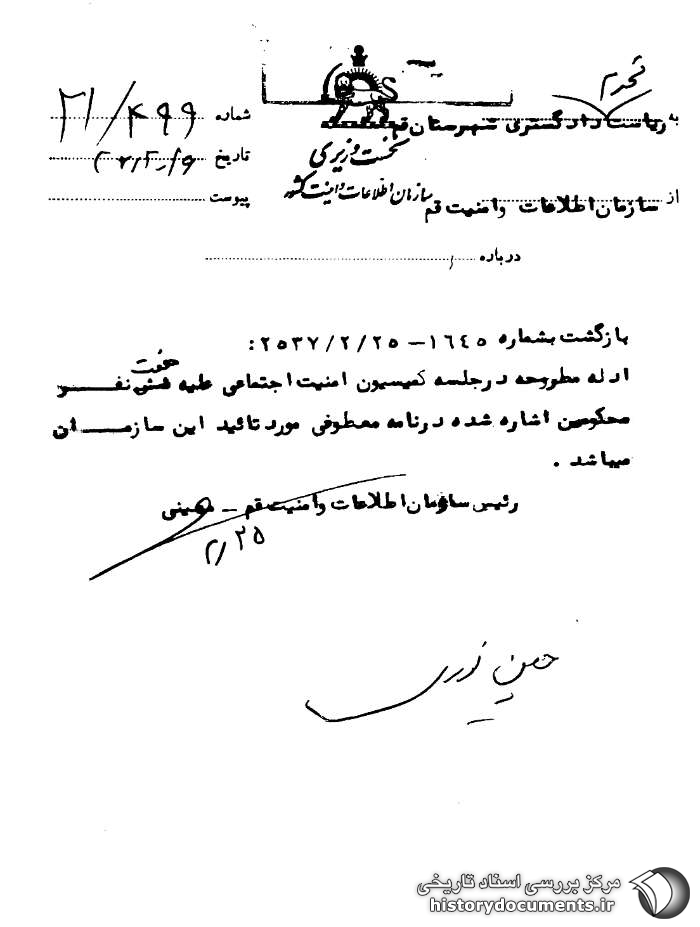 محرم
به ریاست دادگستری شهرستان قم
شماره ۲۱/۴۹۹
نخست وزیری
تاریخ
سازمان اطلاعات و امنیت کشور
از سازمان اطلاعات وامنیت قم
پیوست
درباره
بازگشت بشماره ۱٦٤٥ – ۲٥۳۷/۲/۲٥:
ادله مطروحه درجلسه کمیسیون امنیت اجتماعی علیه هفت نفر
محکومین اشاره شده درنامه معطوفی مورد تائید این سازمـــان
میباشد .
رئیس سازمان اطلاعات وامنیت قم – معینی
۲/۲۵
حسین نوری
مرکز بررسی اسناد تاریخی
historydocuments.ir